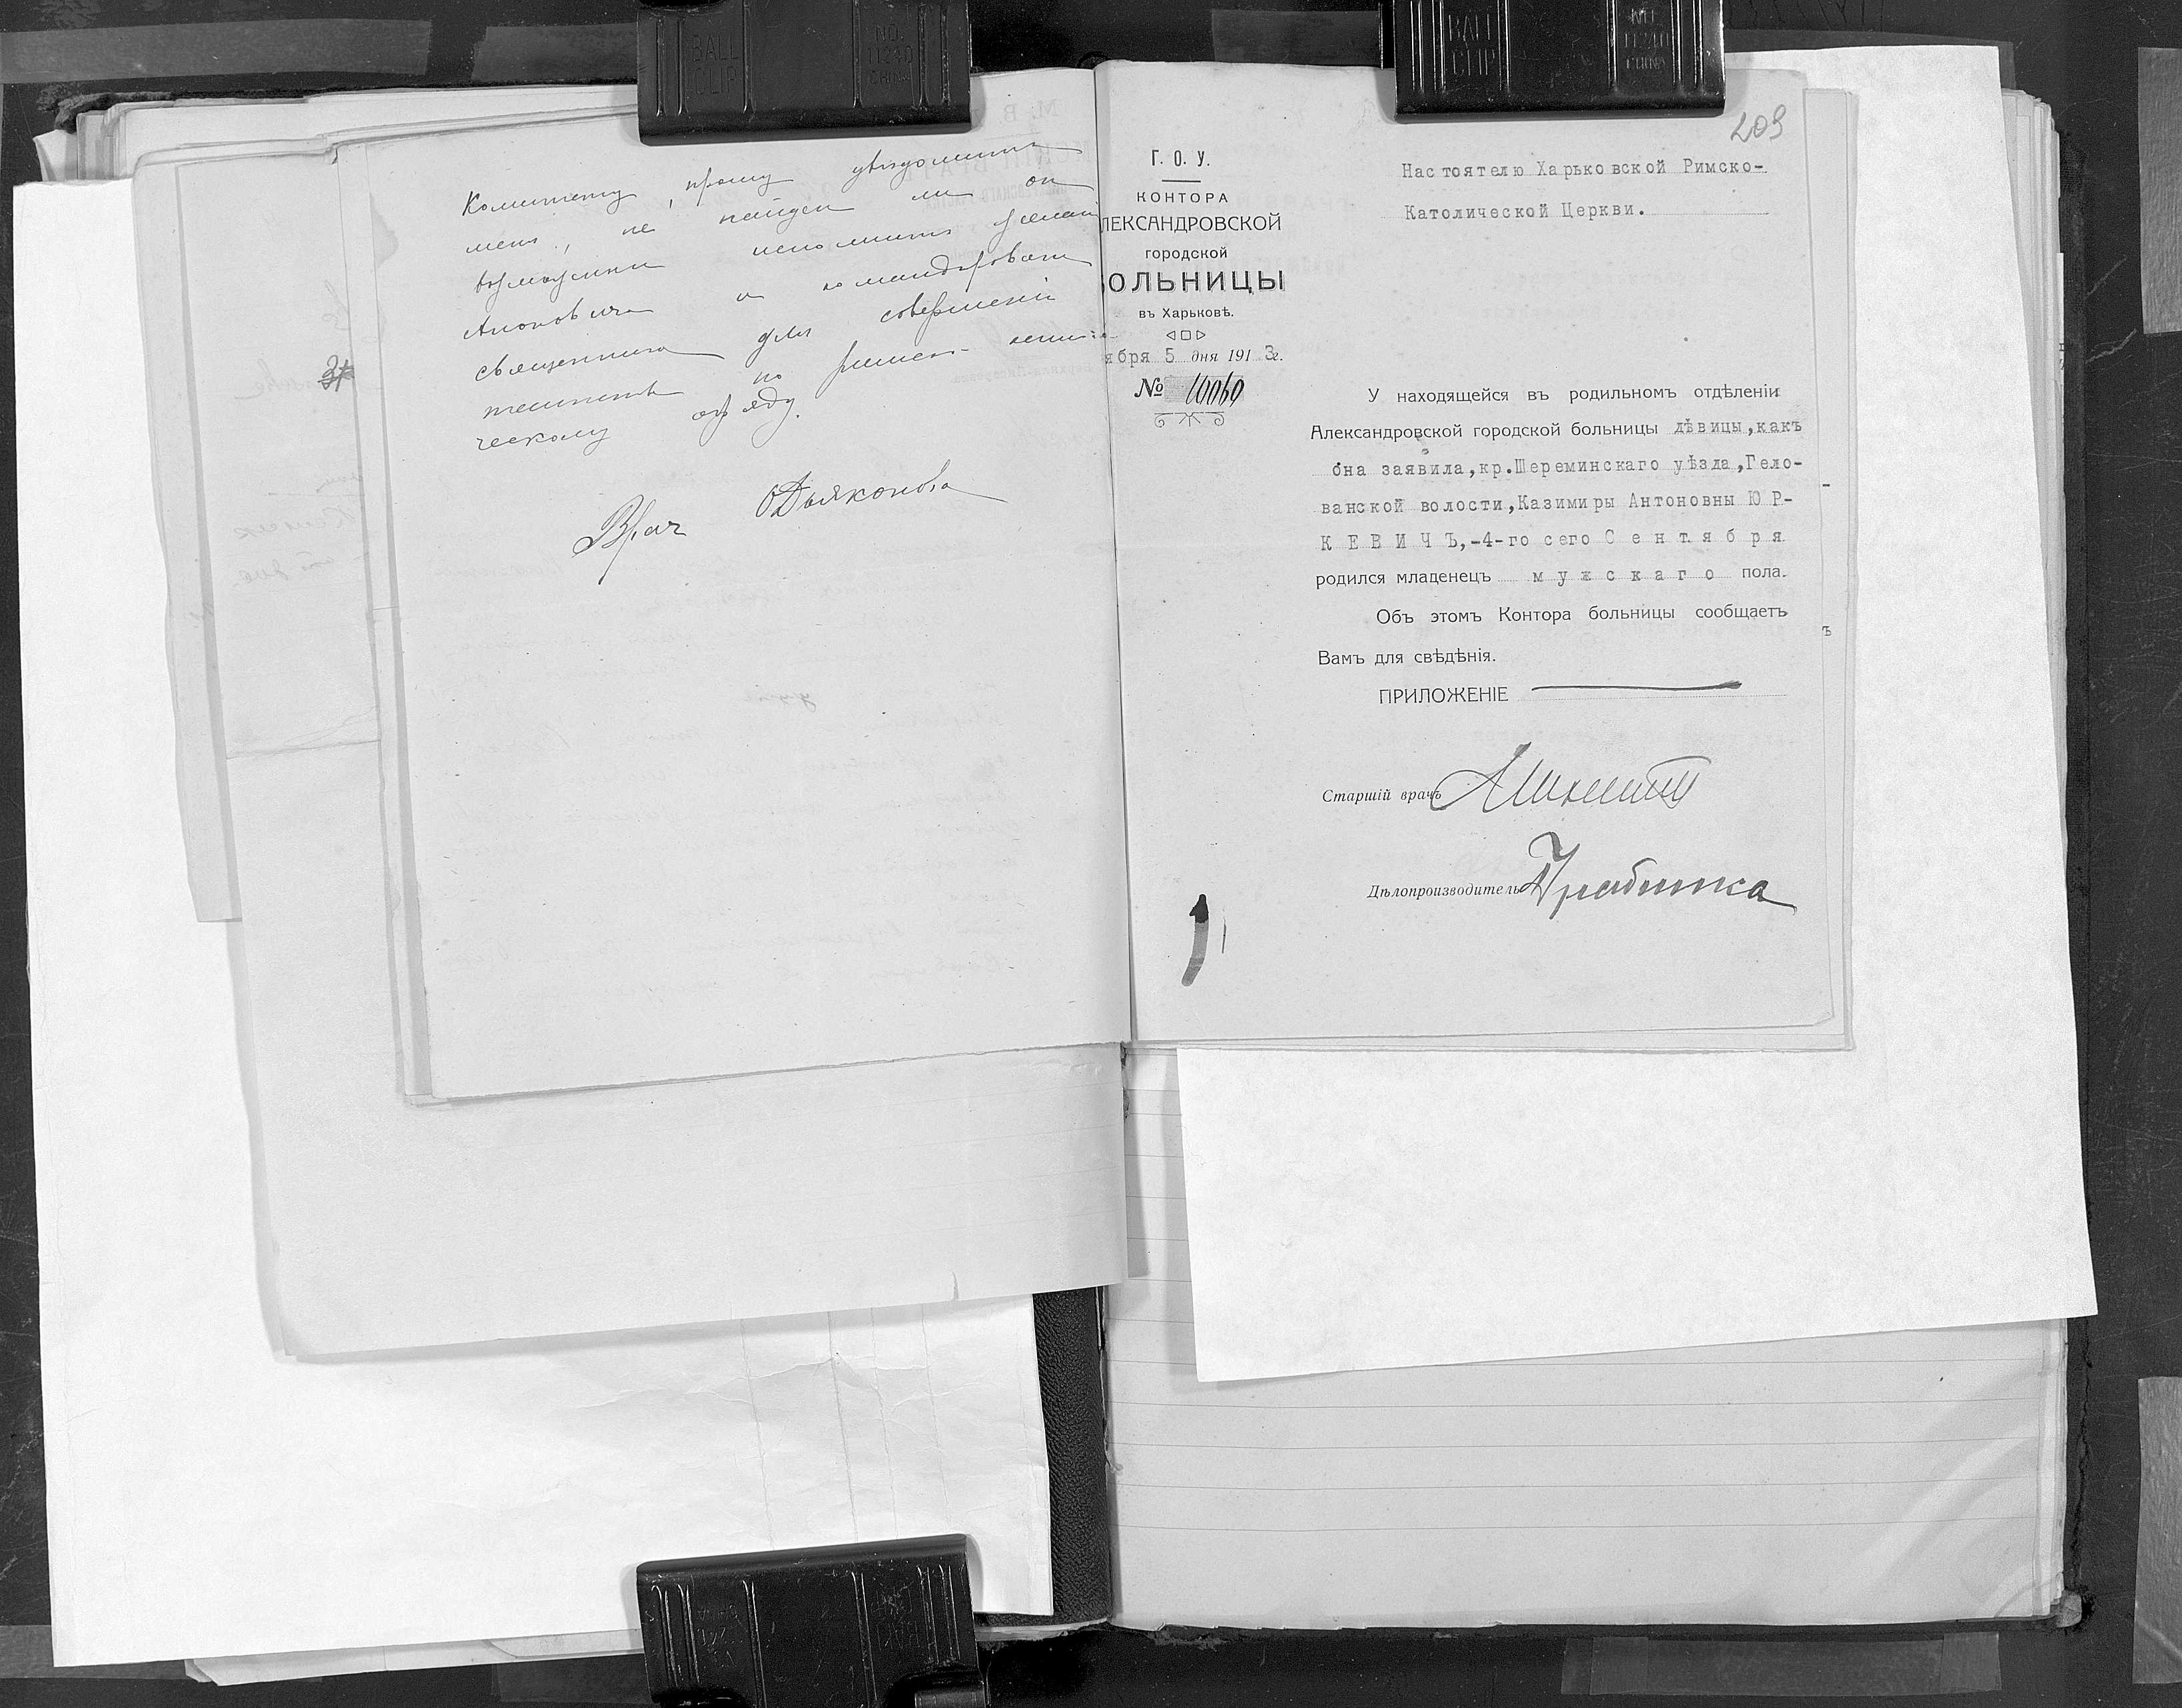 Комитету, прошу уведомить
меня, не найдет ли он
возможным исполнить желание
и командировать
священника для совершения
таинств по римско-католи-
ческому обряду.
Врач Дьяконова
209
Г. О. У.
КОНТОРА
ЛЕКСАНДРОВСКОЙ
городской
ОЛЬНИЦЫ
въ Харьковѣ.
ября 5 дня 1913г.
№ 10060
Настоятелю Харьковской Римско-
Католической Церкви.
У находящейся въ родильномъ отдѣленіи
Александровской городской больницы дѣвицы,какъ
она заявила,кр.Шереминскаго уѣзда,Гело-
ванской волости,Казимиры Антоновны Ю Р-
К Е В И Ч Ъ,-4-го сего С е н т я б р я
родился младенецъ м у ж с к а г о пола.
Объ этомъ Контора больницы сообщаетъ
Вамъ для свѣдѣнія.
ПРИЛОЖЕНІЕ
Старшій врачъ
Дѣлопроизводитель
BALL CLIP
NO. 11240
CHINA
BALL CLIP
NO. 11240
CHINA